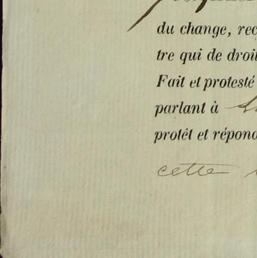 du change, rec
tre qui de droit
Fait et protesté
parlant à
protêt et répond
cette